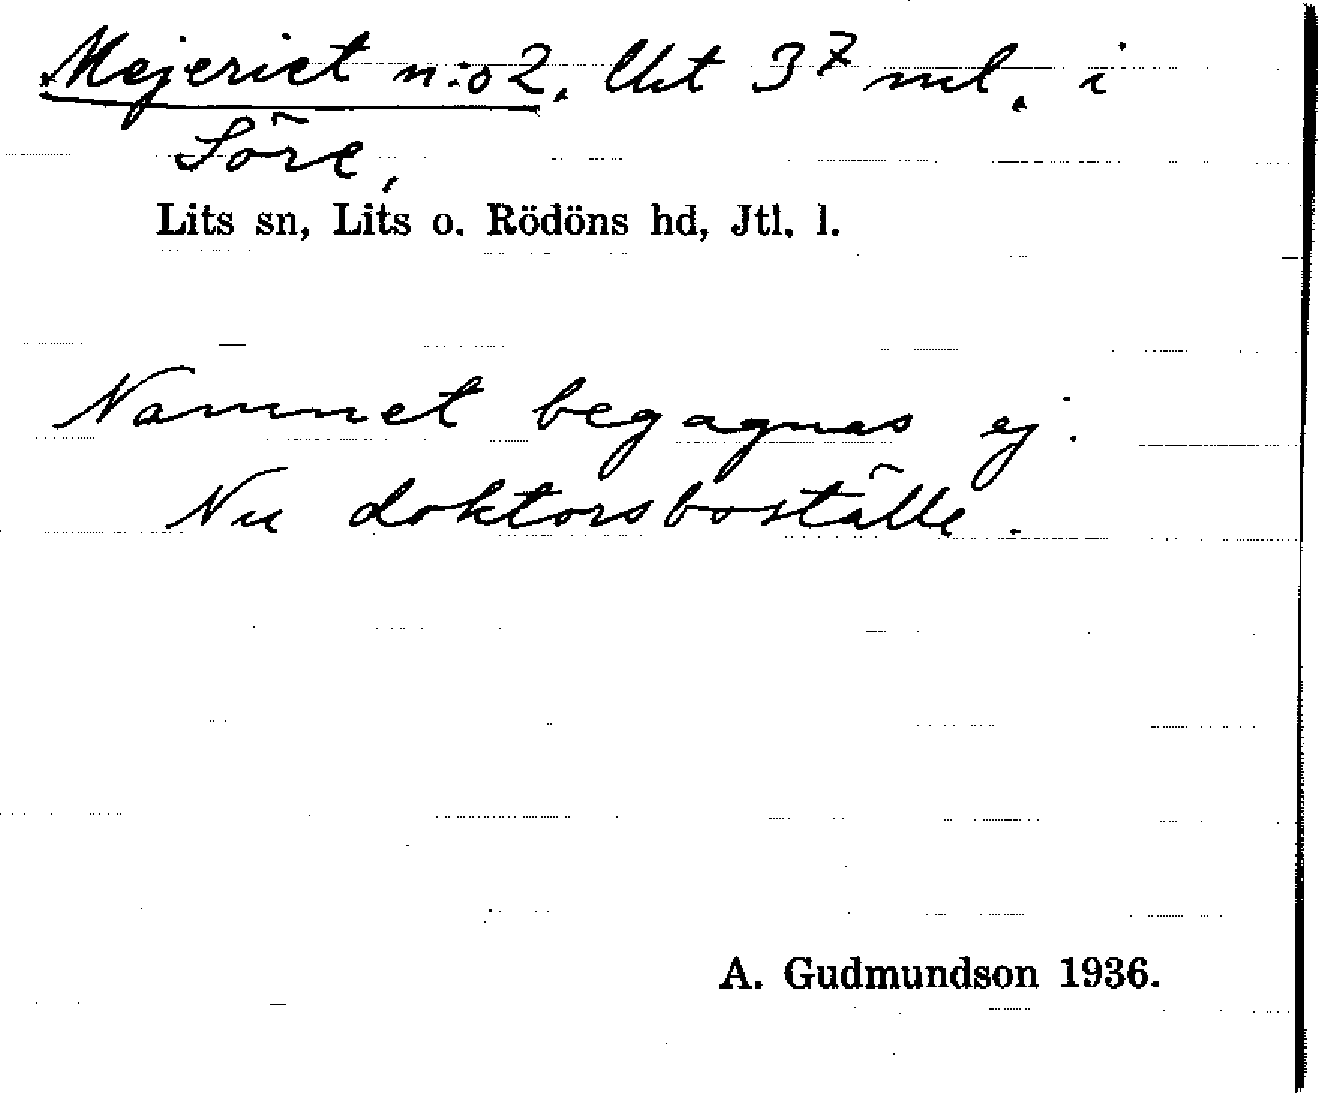 Mejeriet n:o 2. Urt 3⁷ mtl. i
Söre,
Lits sn, Lits o. Rödöns hd, Jtl. l.
Namnet begagnas ej.
Nu doktorsboställe.
A. Gudmundson 1936.